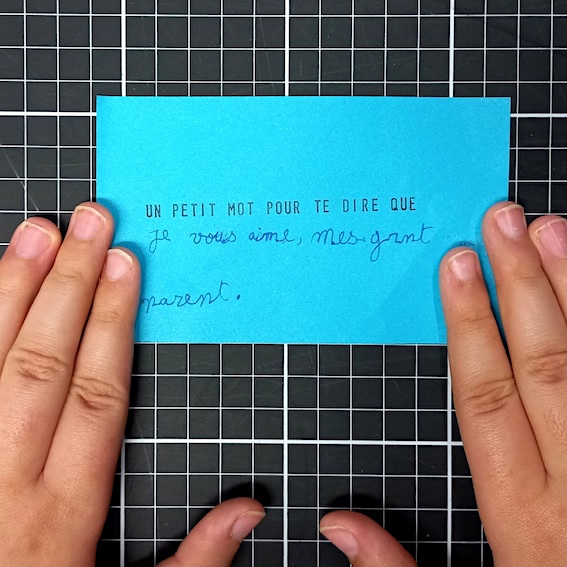 UN PETIT MOT POUR TE DIRE QUE
je vous aime, mes grnt
parent.